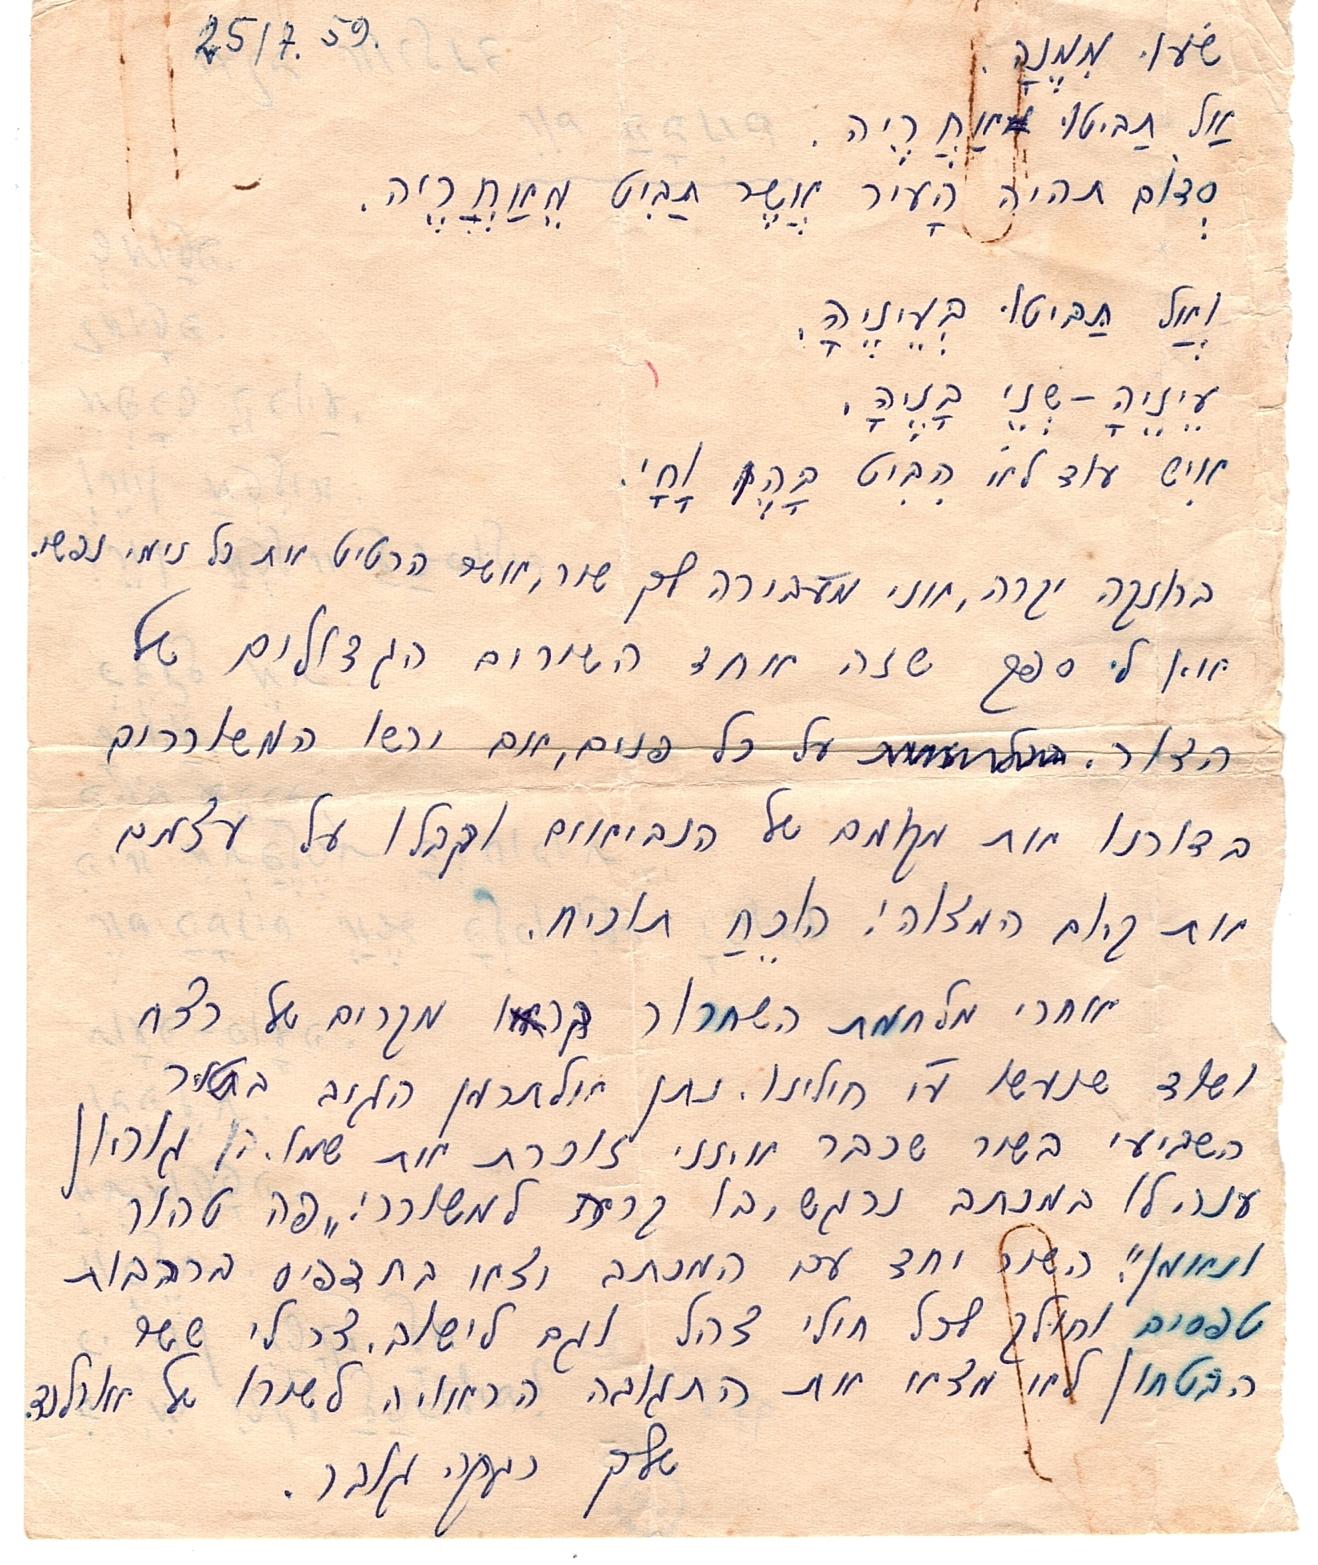 25/7. 59.
שְׂעוּ מִמֶּנָּה.
אַל תַּבִּיטוּ אַחֲרֶיהָ.
סְדוֹם תהיה הָעיר אֲשֶׁר תַּבִּיט מֵאַחֲרֶיהָ.
וְאַל תַּבִּיטוּ בְּעֵינֶיהָ.
עֵינֶיהָ – שְׁנֵי בָּנֶיהָ.
אִישׁ עוד לֹא הִבִּיט בָּהֶן וָחָי.
ברונקה יקרה, אני מעבירה לך שיר, אשר הרטיט את כל נימי נפשי.
אין לי ספק שזה אחד השירים הגדולים של
הדור. על כל פנים, אם ירשו המשוררים
בדורנו את מקומם של הנביאים וקבלו על עצמם
את קיום המצוה: הוֹכֵחַ תוכיח.
אחרי מלחמת השחרור קרו מקרים של רצח
ושוד שנעשו ע"י חילינו. נתן אלתרמן הגיב בטור
השביעי בשיר שכבר אינני זוכרת את שמו. בן גוריון
ענה לו במכתב נרגש, בו קרא למשורר: "פה טהור
ונאמן". השיר יחד עם המכתב יצאו בתדפיס ברבבות
טפסים וחולק לכל חילי צהל וגם לישוב. צר לי ששר
הבטחון לא מצא את התגובה הראויה לשירו של אורלנד.
שלך רבקה גובר.